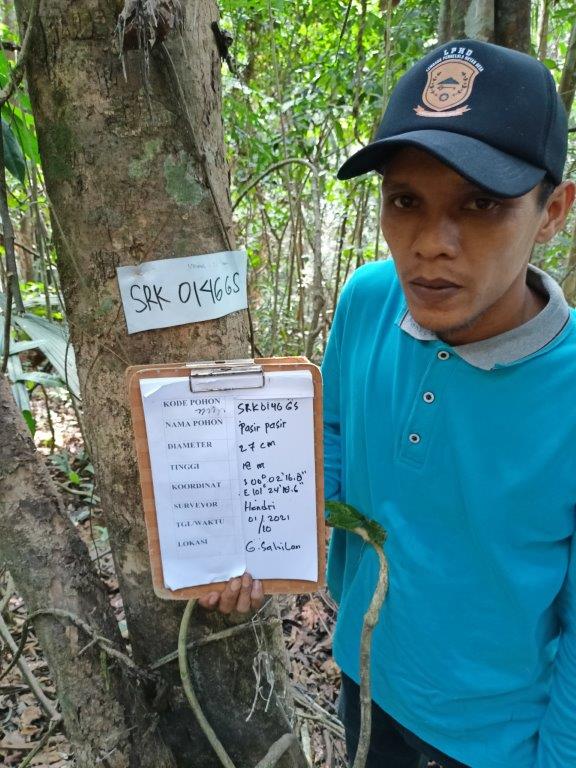 LPHD
SRK 01466S
KODE POHON SRK01466S
NAMA POHON Pasir pasir
DIAMETER 27 cm
TINGGI 18 m
KOORDINAT S 00° 02' 16.8"
E 101° 24' 18.6"
SURVEYOR Hendri
TGL/WAKTU 01/2021
/10
LOKASI G. Sahilan